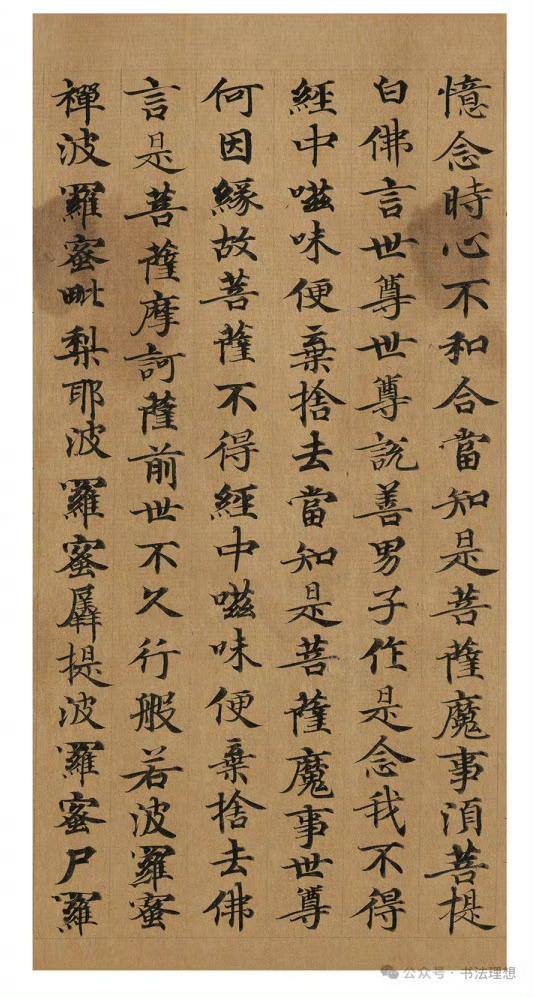 憶念時心不和合當知是菩薩魔事湏菩提
白佛言世尊世尊說善男子作是念我不得
經中嗞味便棄捨去當知是菩薩魔事世尊
何因緣故菩薩不得經中嗞味便棄捨去佛
言是菩薩摩訶薩前世不久行般若波羅蜜
禪波羅蜜毗梨耶波羅蜜羼提波羅蜜尸羅
公众号·书法理想